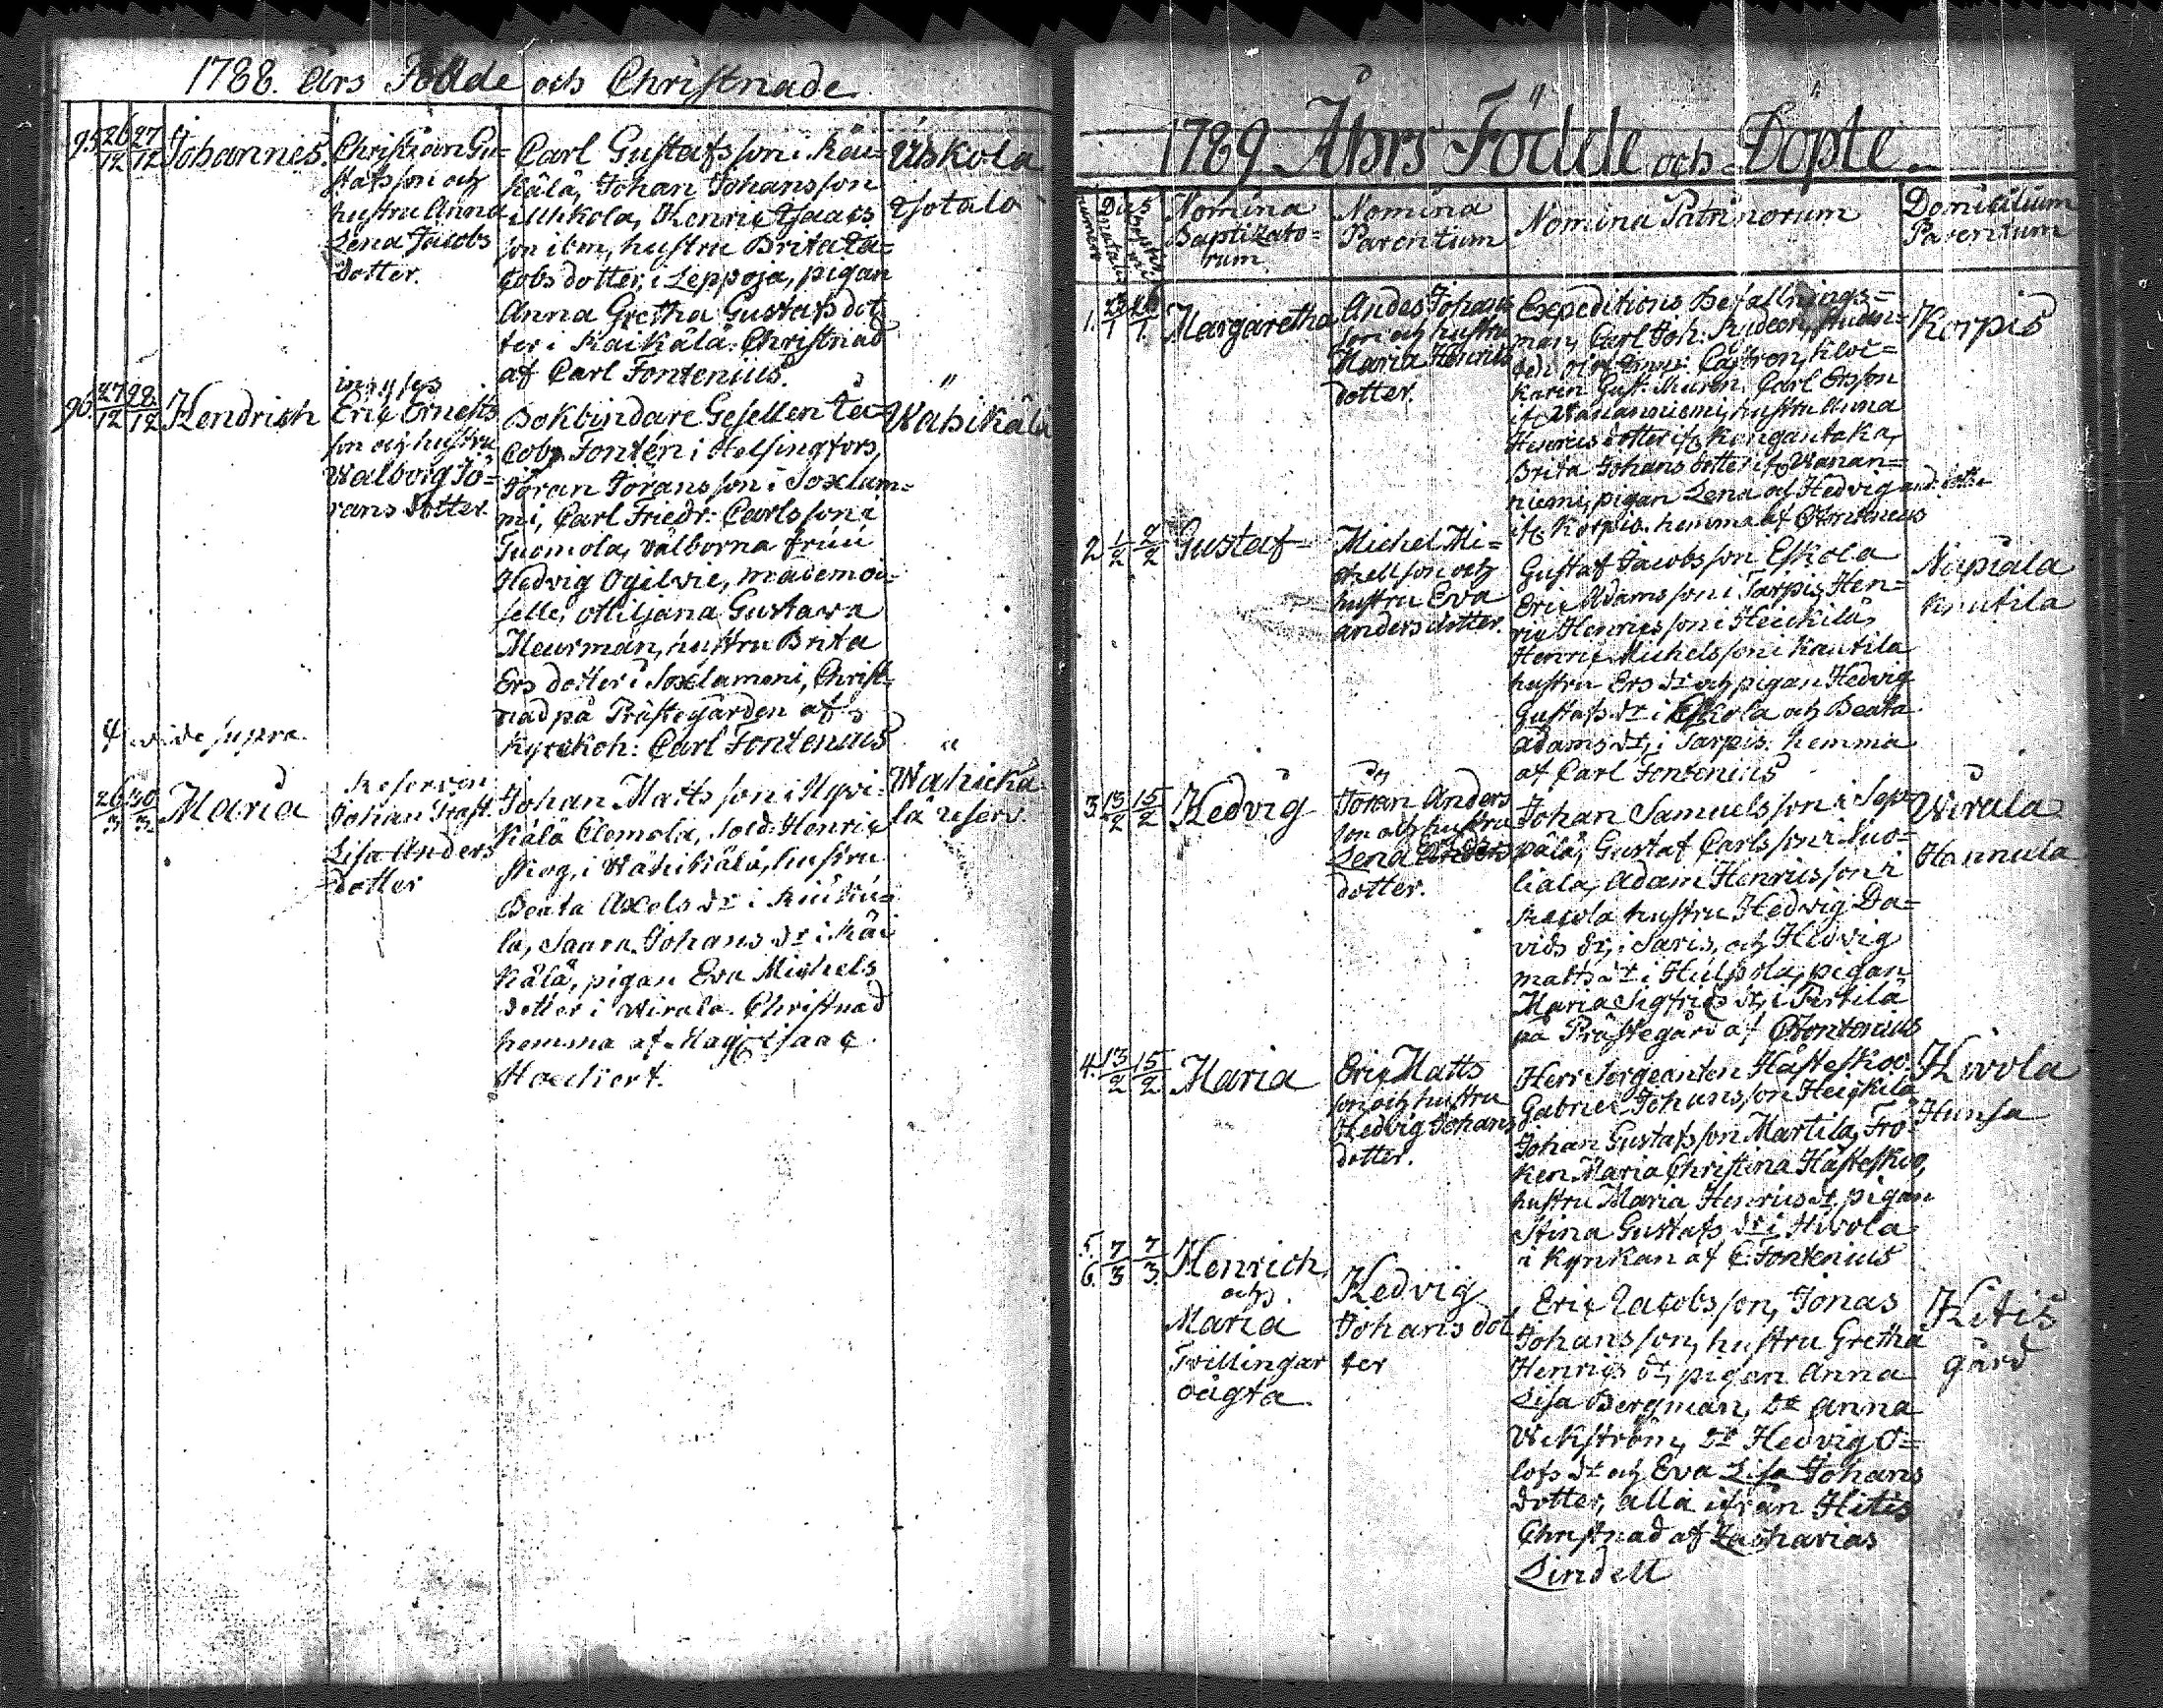 1788. års Födde och Christnade
95. 26/12 27/12 Johannes. Christian Gu=
stafsson och
hustru Anna
Lena Jacobs
dotter.
Carl Gustafsson i Käi=
kälä, Johan Johansson
i Uskola, Henric Isaacs
son ibm, hustru Brita Ja=
cobs dotter, i Leppoja, pigan
Anna Gretha Gustafs dot
ter i Kaikälä. Christnad
af Carl Fontenius.
Uskola
Isotalo
96. 27/12 28/12 Hendrich
Eric Ernests
son och hustru
Walborg Jö=
rans dotter.
Bokbindare Gesellen Ja=
cob Fontén i Helsingfors,
Jöran Jöransson i Joxlam=
mi, Carl Friedr: Carlsson i
Tuomola, välborna fruu
Hedvig Ogilvie, mademoi=
selle, Ottiljana Gustava
Meurman, hustru Brita
Ers dotter i Joxlamoni, Christ=
nad på Prästegården af
Kyrckoh: Carl Fontenius
Wahikälä
vide supra
26/3 30/3 Maria
Johan Stast.
Lisa Anders
dotter
Johan Matts son i Hyvi
kälä Clemola, Sold. Henric
Skog, i Wähikälä, hustru
Beata Axels dr i
la, Saara Johans dr i Käi
kälä, pigan Eva Michels
dotter i Wirala. Christnad
hemma af Mag: Isaac
Haeckert.
Wahickä
lä reserv.
1789 Åhrs Födde och Döpte.
Numerus
Dies
Nomina
Baptizato=
rum
Nomina
Parentum
Nomina Patrinorum
Domicilium
Parentum
1. Margaretha
Andes Johans
son och hustru
Maria Henrics
dotter.
Expeditions Befallnings=
man, Carl Joh:
Castren, Kloc=
karen Gust. Muren, Carl Ersson
if. Wananniemi, hustru Anna
Henrics dotter if. Kongantaka,
Brita Johans dotter if. Wanan=
niemi, pigan Lena och Hedvig and. dott.
if. Korpis. hemma af C Fontenius
Korpis
2 1/2 2/2 Gustaf
Michel Mi=
chelsson och
hustru Eva
anders dotter.
Gustaf Jacobsson, Eskola
Eric Adamsson i Sarpis, Hen=
ric Henricsson i Heickilä,
Henric Michelsson i Kautila
hustru Ers dr och pigan Hedvig
Gustafs dr i Eskola och Beata
Adams dr, i Sarpis. hemma
af Carl Fontenius
Napiala
Knutila
3. 13/2 15/2 Hedvig
Johan Anders
son och hustru
Lena Anders
dotter.
Johan Samuelsson i Sep=
pälä, Gustaf Carlsson i Suo=
liala, Adam Henricsson i
Recola hustru Hedvig Da=
vids dr, i Saris, och Hedvig
matts dr i Hulppila, pigan
Maria Sigfrids dr, i Pertilä
på Prästegård af C Fontenius
Wirala
Hannula
4. 13/2 15/2 Maria
Eric Matts
son och hustru
Hedvig Johans
dotter.
Herr Sergeanten Hästeskoo.
Gabriel Johansson Heickilä
Johan Gustafsson Martila, Frö
ken Maria Christina Hästeskoo,
hustru Maria Henrics dr, pigan
Stina Gustafs dr i Hivola
i Kyrkan af C. Fontenius
Hivola
Hunsa
5. 6. 7/3 7/3 Henrich
och
Maria
Tvillingar
oägta.
Hedvig
Johans dot
ter
Eric Jacobsson, Jonas
Johansson, hustru Gretha
Henrics dr, pigan Anna
Lisa Bergman, Do Anna
Wickström, Do Hedvig O=
lofs dr och Eva Lisa Johans
dotter, alla ifrån Hitis
Christnad af Zacharias
Lindell
Hitis
gård